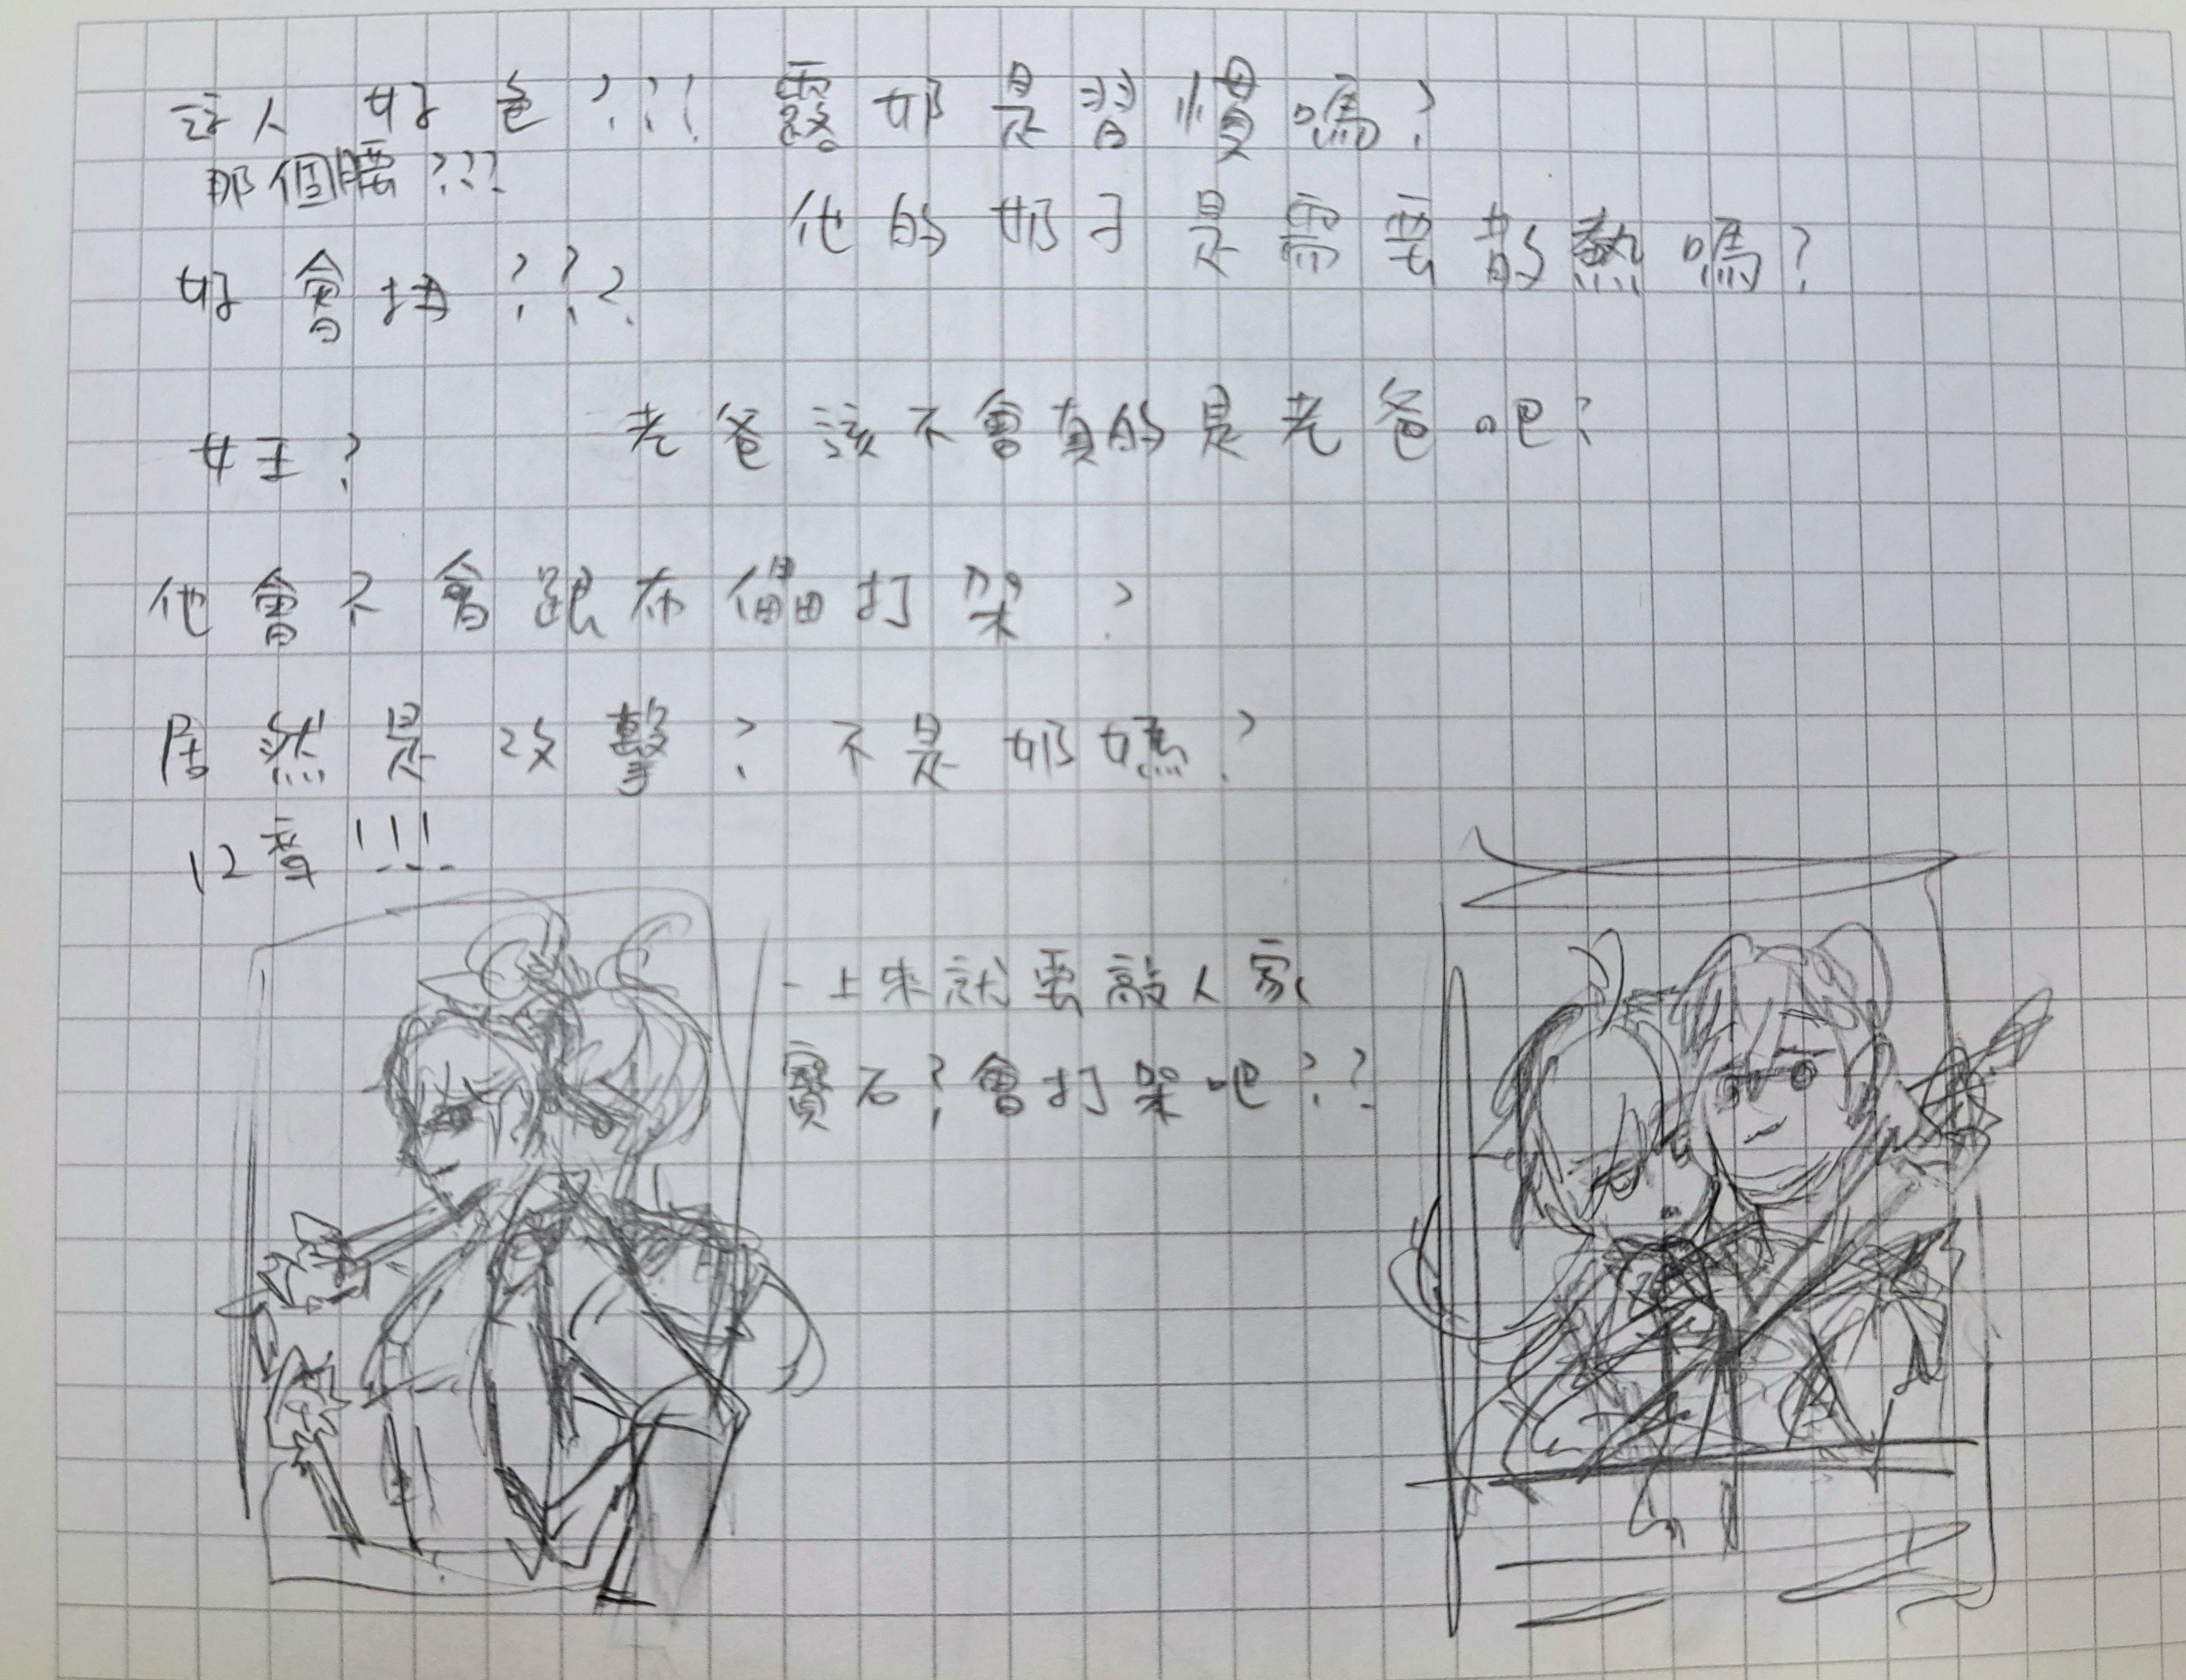 這人好色???露奶是習慣嗎?
那個腰???
他的奶子是需要散熱嗎?
好會扭???
女王?
老爸該不會真的是老爸吧?
他會不會跟布儡打架?
居然是攻擊?不是奶媽?
12章!!!
一上來就要敲人家
寶石?會打架吧??